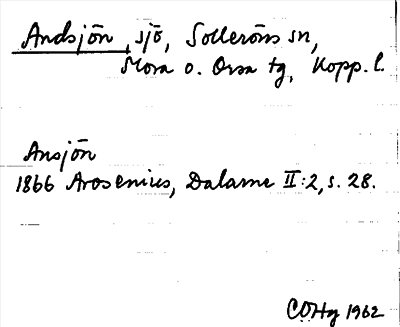 Andsjön, sjö, Solleröns sn,
Mora o. Orsa tg, Kopp. l.
Ansjön
1866 Arosenius, Dalarne II:2, s. 28.
COHg 1962